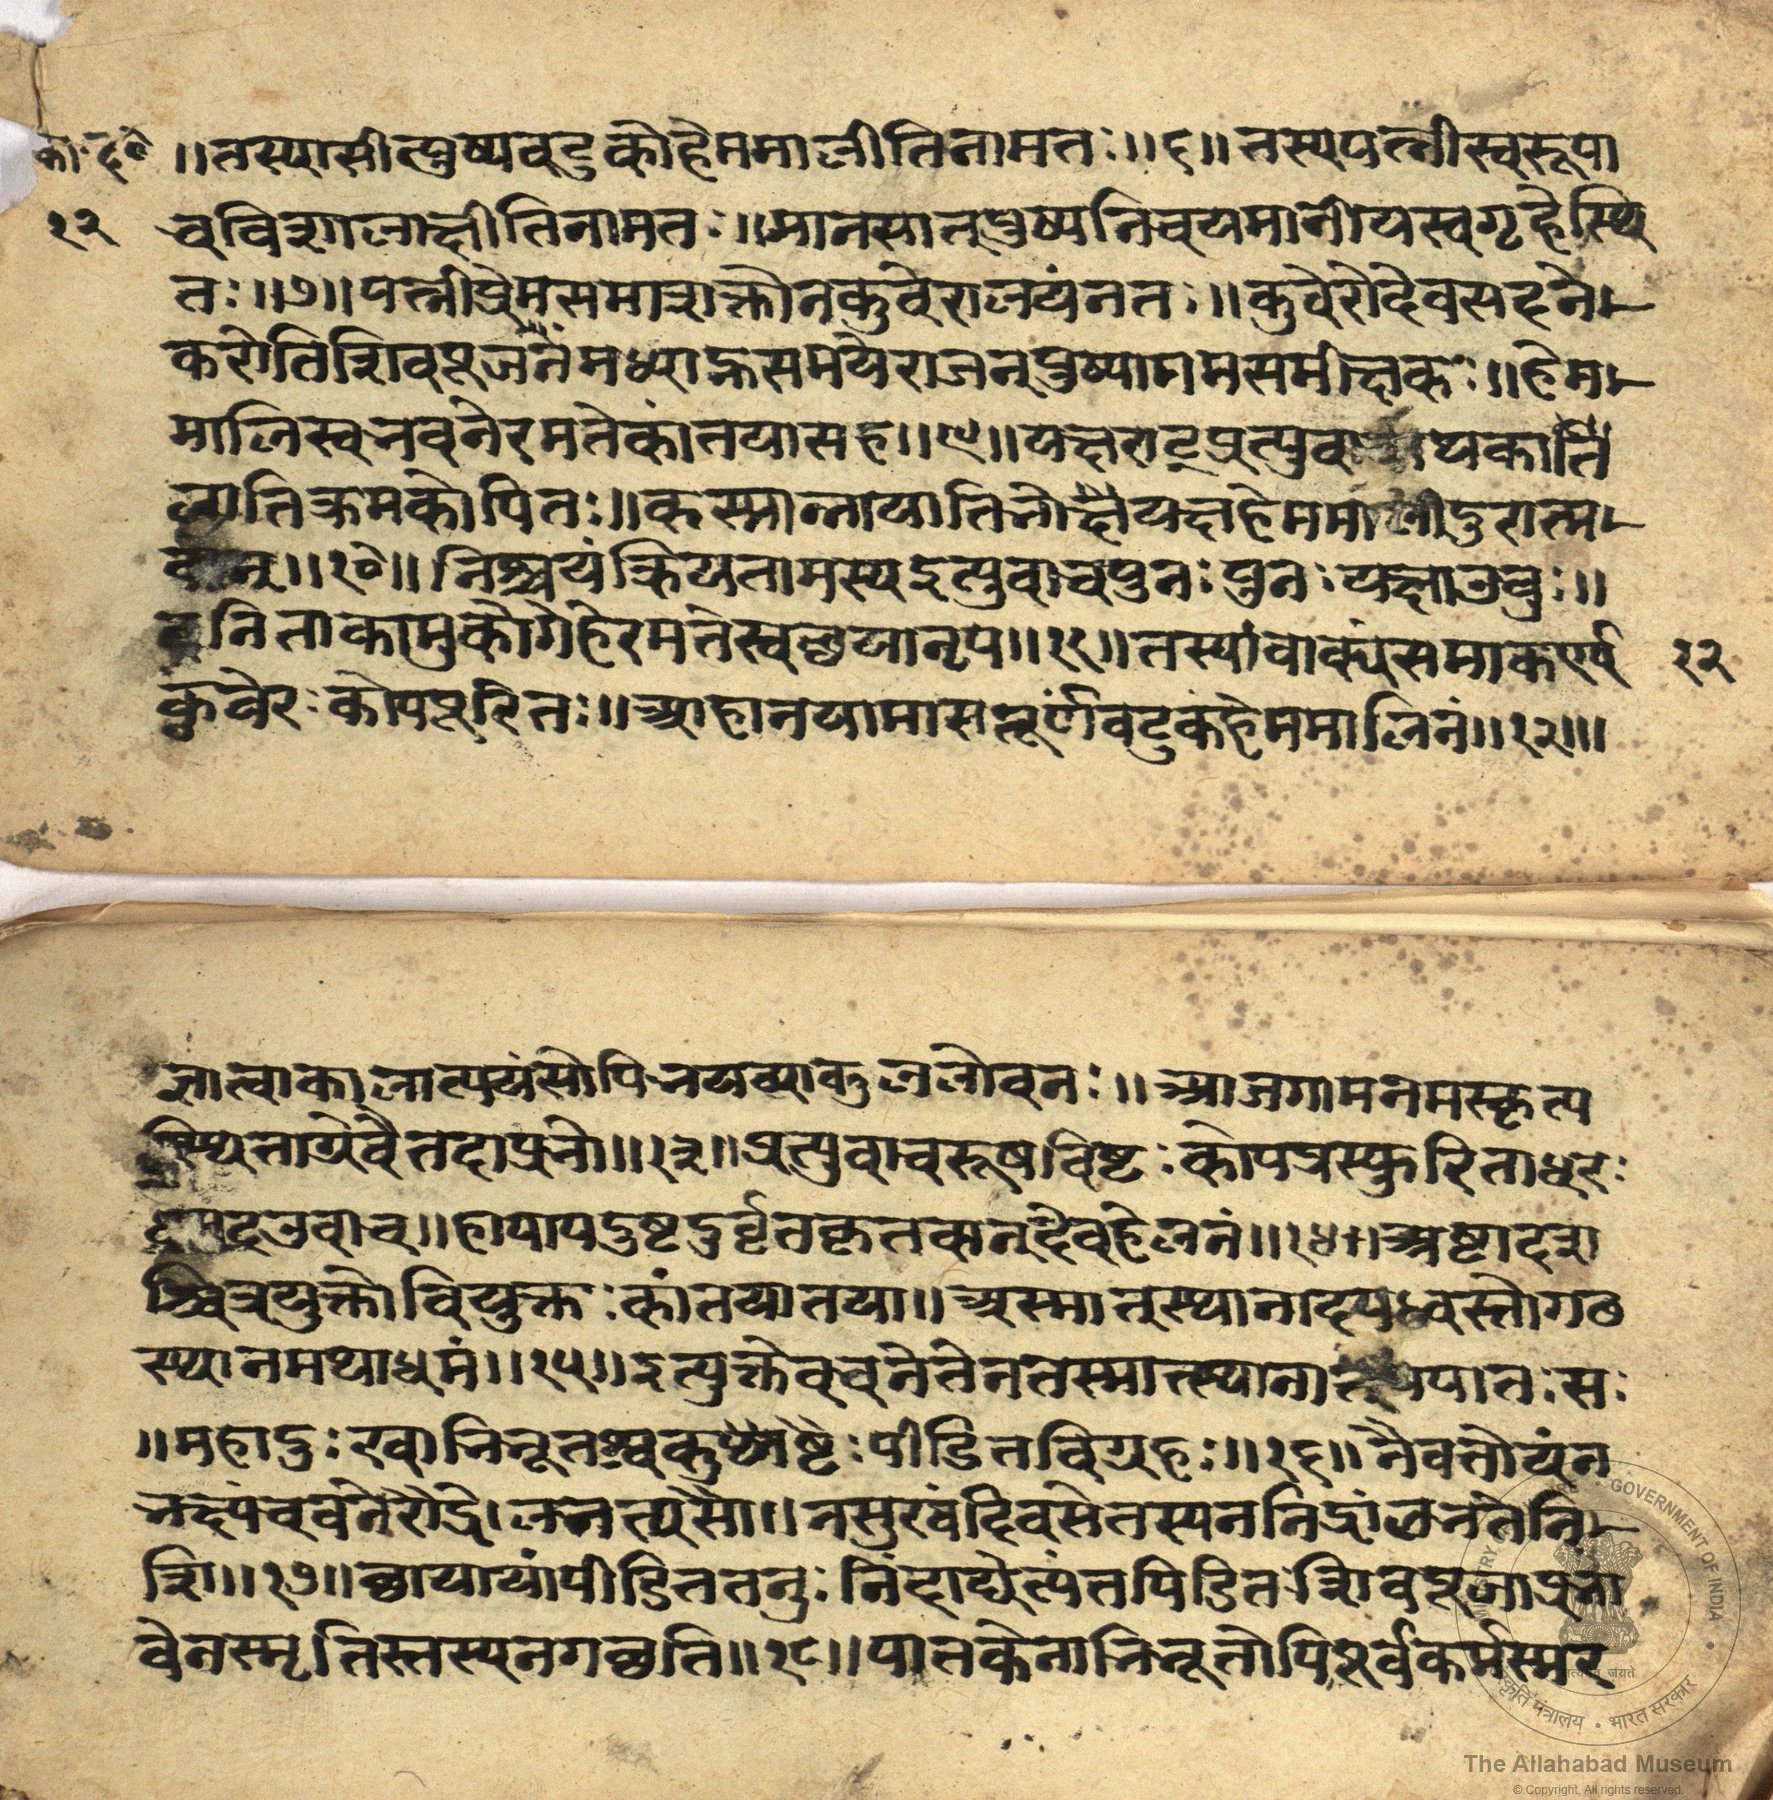 ।।तस्यासीत्पुष्पबटुकोहेममालीतिनामतः।।६।।तस्यपत्नीस्वरूपा
१२ चविशालाक्षीतिनामतः।।मानसात्पुष्पनिचयमानीयस्वगृहेस्थि
तः।।७।।पत्नीप्रेमसमाशक्तोनकुवेरालयंनतः।।कुवेरोदेवसदने
करोतिशिवपूजनंमध्याह्नसमयेराजन्पुष्पागमसमीक्षकः।।हेम
मालिस्वभवनेरमतेकांतयासह।।९।।यक्षराट्प्रत्युवा
त्यातिक्रमकोपितः।।कस्मान्नायातिभोयक्षहेममालीदुरात्म
वान्।।१०।।निश्चयंक्रियतामस्यइत्युवाचपुनःपुनःयक्षाऊचुः।।
वनिताकामुकोगेहेरमतेस्वेछयानृप।।११।।तस्यांवाक्यंसमाकर्ण्य १२
कुवेरःकोपपूरितः।।आह्वानयामासतूर्णंबटुकंहेममालिनं।।१२।।
ज्ञात्वाकालात्ययंसोपिभयव्याकुललोचनः।।आजगामनमस्कृत्य
स्थिताग्रेवैतदाप्रभो।।१३।।प्रत्युवाचरूषाविष्टःकोपप्रस्फुरिताधरः
उवाच।।हापापदुष्टदुर्वृत्तकृतवान्देवहेलनं।।१४।।अष्टादश
श्वित्रयुक्तोवियुक्तःकांतयातया।।अस्मात्स्थानादपध्वस्तोगछ
स्थानमथाधमं।।१५।।इत्युक्तेवचनेतेनतस्मात्स्थानात्पपातःसः
।।महादुःखाभिभूतश्चकुष्ठाष्टैःपीडितविग्रहः।।१६।।नैवतोयंन
भक्ष्यंचवनेरौद्रेलभत्यसौ।।नसुखंदिवसेतस्यननिद्रांलभतेनि
शि।।१७।।छायायांपीडिततनुःनिंदाघेत्यंतपिडितःशिवपूजाप्रभा
वेनस्मृतिस्तस्यनगछति।।१८।।पातकेनाभिभूतोपिपूर्वकर्मस्मर
GOVERNMENT OF INDIA
संस्कृति मंत्रालय • भारत सरकार
The Allahabad Museum
© Copyright, All rights reserved.